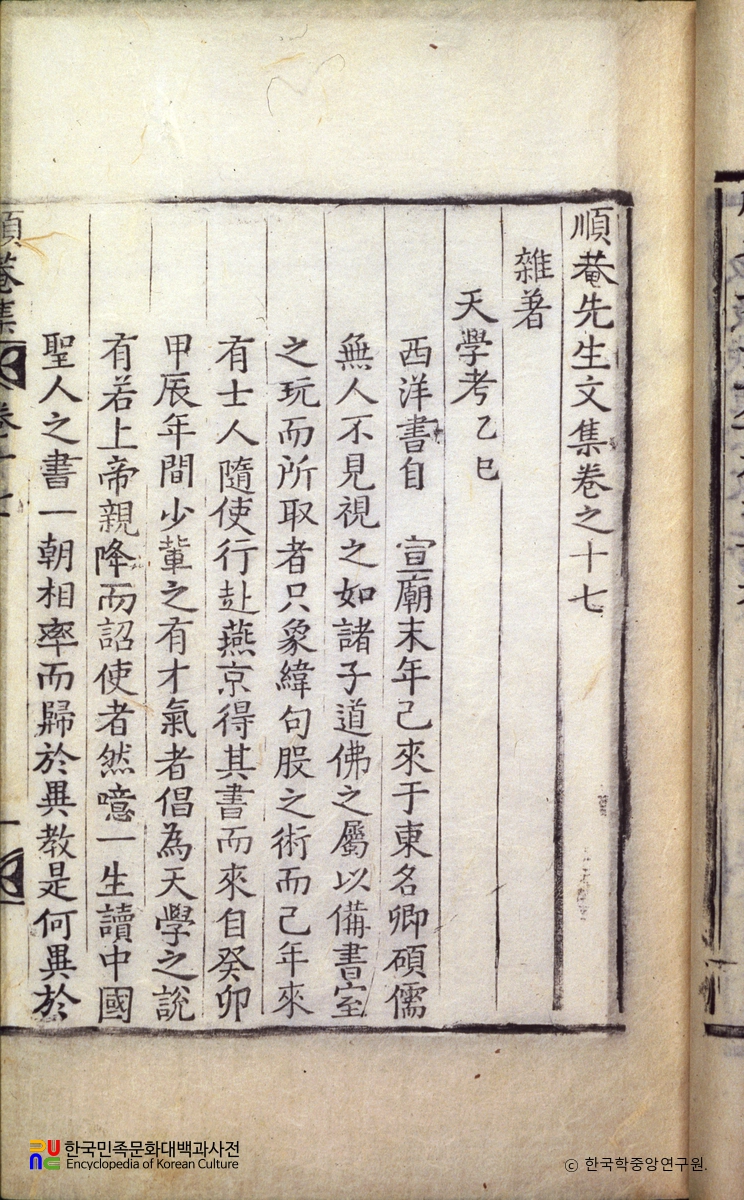 順菴先生文集卷之十七
雜著
天學考 乙巳
西洋書自 宣廟末年已來于東名卿碩儒
無人不見視之如諸子道佛之屬以備書室
之玩而所取者只象緯句股之術而已年來
有士人隨使行赴燕京得其書而來自癸卯
甲辰年間少輩之有才氣者倡為天學之說
有若上帝親降而詔使者然噫一生讀中國
聖人之書一朝相率而歸於異教是何異於
順菴集 卷十七 一
한국민족문화대백과사전
Encyclopedia of Korean Culture
© 한국학중앙연구원.